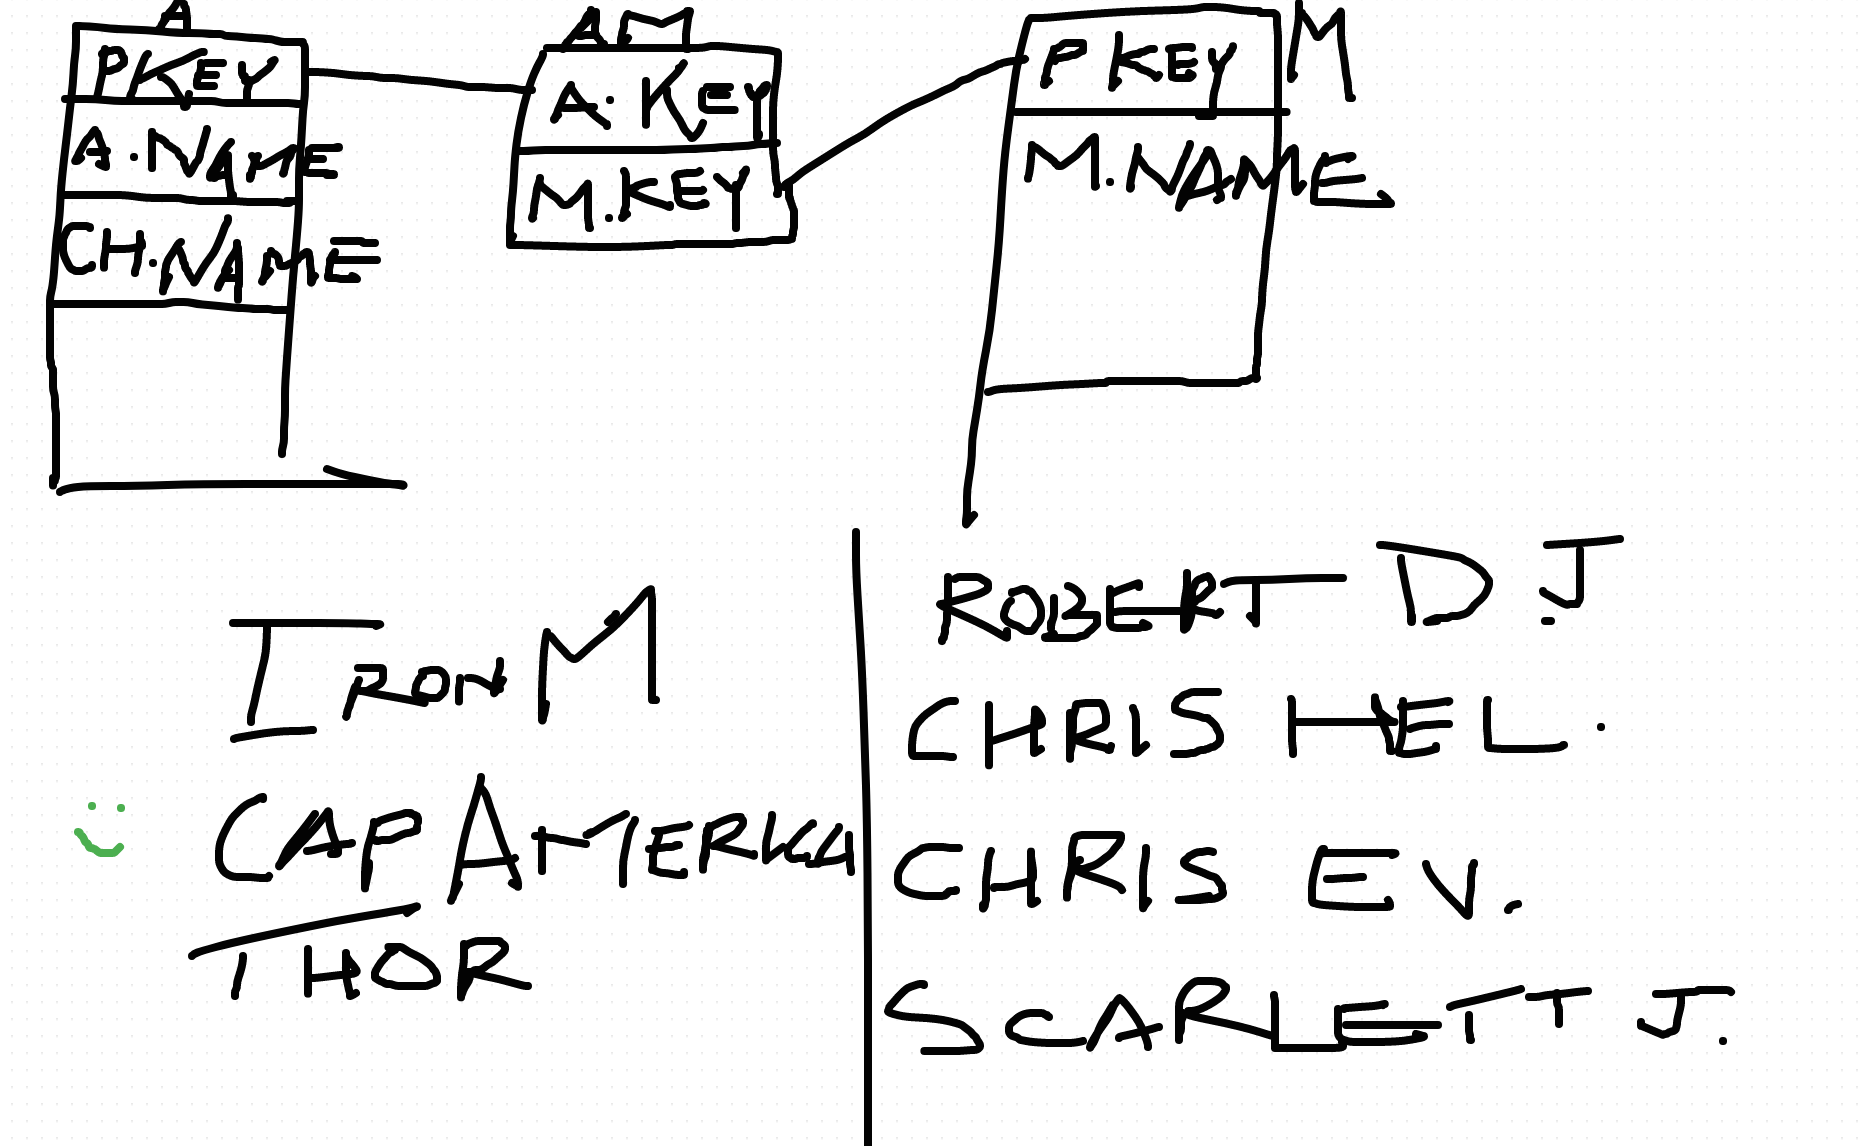 A
P KEY
A. NAME
CH. NAME
AM
A. KEY
M. KEY
M
P KEY
M. NAME
IRON M
CAP AMERICA
THOR
ROBERT D J
CHRIS HEL.
CHRIS EV.
SCARLETT J.